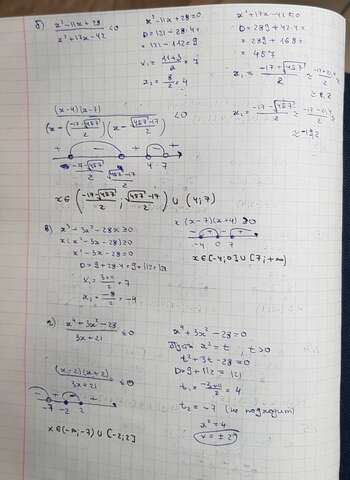 б) (x²-11x+28)/(x²+17x-42) <0
x²-11x+28=0
D=121-28·4=
=121-112=9
x₁=(11+3)/2=7
x₂=8/2=4
x²+17x-42=0
D=289+42·4=
=289+168=
=457
x₁=(-17+√457)/2 ≈
≈2,2
x₂=(-17-√457)/2 ≈
≈-19,2
(x-4)(x-7)
(x-(-17-√457)/2)(x-(√457-17)/2) <0
+ - + - +
(-17-√457)/2 (√457-17)/2 4 7
x∈((-17-√457)/2; (√457-17)/2) ∪ (4;7)
в) x³-3x²-28x≥0
x(x²-3x-28)≥0
x²-3x-28=0
D=9+28·4=9+112=121
x₁=(3+11)/2=7
x₂=-8/2=-4
x(x-7)(x+4)≥0
- + - +
-4 0 7
x∈[-4;0]∪[7;+∞)
г) (x⁴+3x²-28)/(3x+21) ≤0
x⁴+3x²-28=0
Пусть x²=t, t>0
t²+3t-28=0
D=9+112=121
t₁=(-3+11)/2=4
t₂=-7 (не подходит)
x²=4
x=±2
(x-2)(x+2)/(3x+21) ≤0
- + - +
-7 -2 2
x∈(-∞;-7)∪[-2;2]